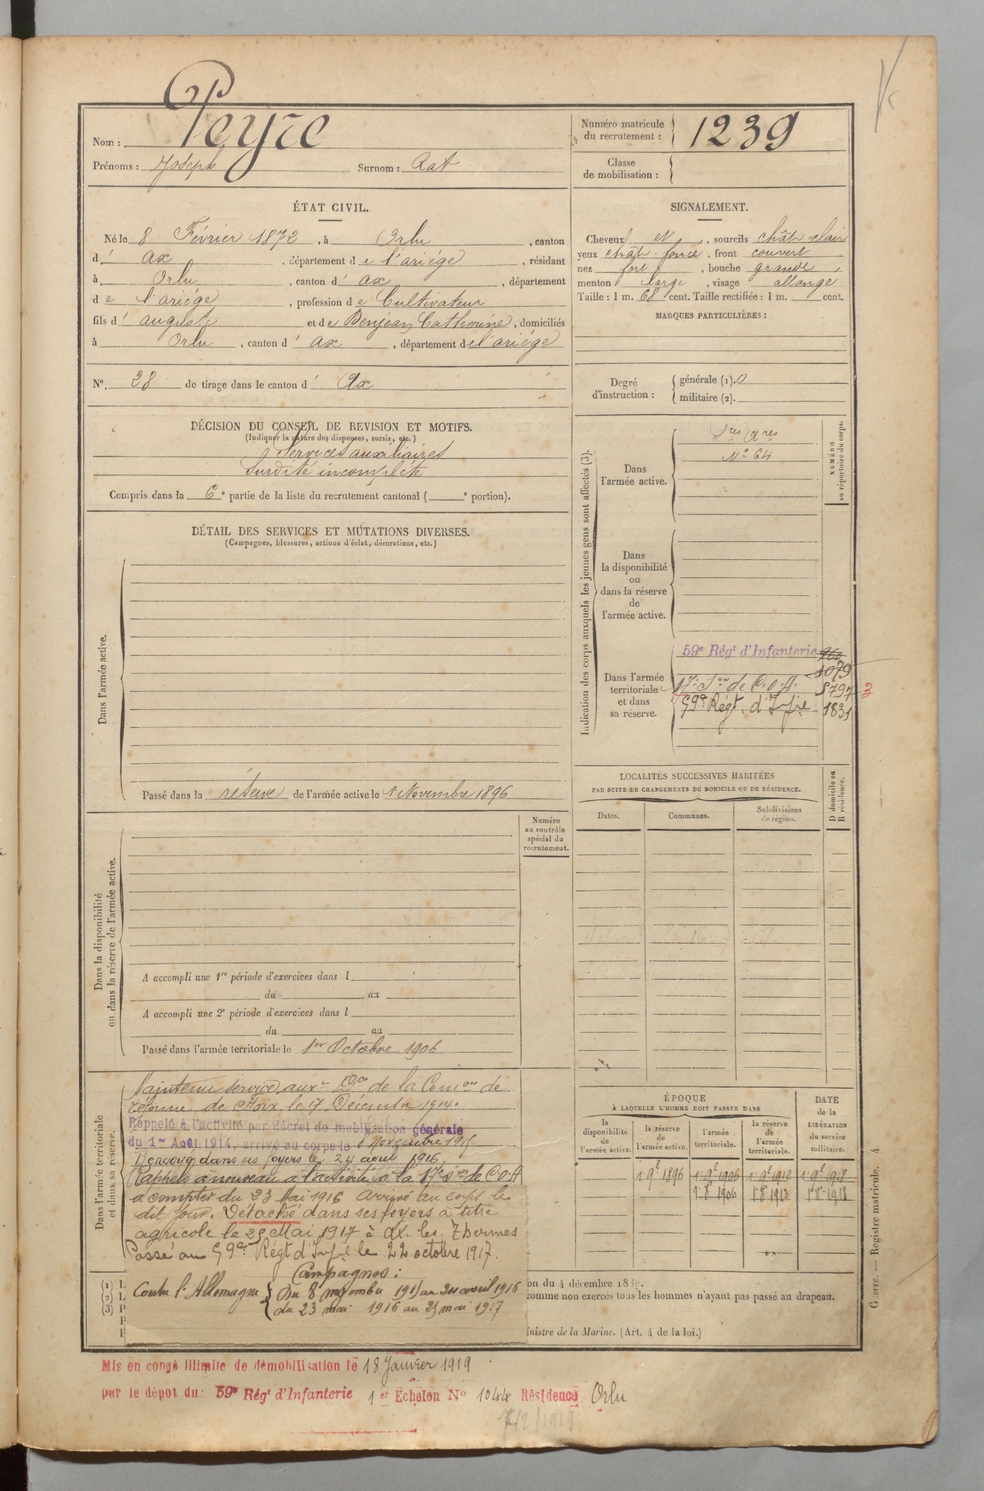 Nom : Peyre
Prénoms : Joseph Surnom : Rat
Numéro matricule du recrutement : 1239
Classe de mobilisation :
ÉTAT CIVIL.
Né le 8 Février 1872, à Orlu, canton
d' ax, département de l'ariége, résidant
à Orlu, canton d' ax, département
de l'ariége, profession de Cultivateur
fils d' auguste et de Bonjean Catherine, domiciliés
à Orlu, canton d' ax, département de l'ariége
N° 28 de tirage dans le canton d' Ax
SIGNALEMENT.
Cheveux et, sourcils chât. clair
yeux chât. foncé, front couvert
nez fort, bouche grande,
menton large, visage allongé
Taille : 1 m. 68 cent. Taille rectifiée : 1 m. cent.
MARQUES PARTICULIÈRES :
Degré d'instruction : générale (1). 0
militaire (2).
DÉCISION DU CONSEIL DE REVISION ET MOTIFS.
(Indiquer la nature des dispenses, sursis, etc.)
Services auxiliaires
Surdité incomplète
Compris dans la 6e partie de la liste du recrutement cantonal ( e portion).
DÉTAIL DES SERVICES ET MUTATIONS DIVERSES.
(Campagnes, blessures, actions d'éclat, décorations, etc.)
Dans l'armée active.
Passé dans la réserve de l'armée active le 1 Novembre 1896
Indication des corps auxquels les jeunes gens sont affectés (3).
NUMÉRO au répertoire du corps.
Dans l'armée active.
N° 64
Dans la disponibilité ou dans la réserve de l'armée active.
Dans l'armée territoriale et dans sa réserve.
59e Régt d'Infanterie
1079
17e Son de C.O.A. 5797 3
59e Régt d'Infie 1831
LOCALITÉS SUCCESSIVES HABITÉES
PAR SUITE DE CHANGEMENTS DE DOMICILE OU DE RÉSIDENCE.
Dates. Communes. Subdivisions de région. D domicile ou R résidence.
Numéro au contrôle spécial du recrutement.
Dans la disponibilité ou dans la réserve de l'armée active.
A accompli une 1re période d'exercices dans l
du au
A accompli une 2e période d'exercices dans l
du au
Passé dans l'armée territoriale le 1er Octobre 1906
Dans l'armée territoriale et dans sa réserve.
Maintenu service auxre Don de la Comon de
réforme de Foix le 17 Décembre 1914.
Rappelé à l'activité par décret de mobilisation générale
du 1er Août 1914, arrivé au corps le 8 Novembre 1915
Renvoyé dans ses foyers le 24 avril 1916
Rappelé à nouveau à l'activité à la 17e Son de C.O.A
à compter du 23 Mai 1916 arrivé au corps le
dit jour. Détaché dans ses foyers à titre
agricole le 25 Mai 1917 à Ax les Thermes
Passé au 59e Régt d'Infie le 22 octobre 1917.
Campagnes :
Contre l'Allemagne Du 8 novembre 1915 au 24 avril 1916
du 23 mai 1916 au 25 mai 1917
ÉPOQUE
À LAQUELLE L'HOMME DOIT PASSER DANS
la disponibilité de l'armée active. la réserve de l'armée active. l'armée territoriale. la réserve de l'armée territoriale. DATE de la LIBÉRATION du service militaire.
1 9e 1896 1 9e 1906 1 9e 1912 1 9e 1918
1 8 1906 1 8 1913 1 8 1918
on du 4 décembre
comme non exercés tous les hommes n'ayant pas passé au drapeau.
inistre de la Marine. (Art. 4 de la loi.)
Registre matricule. 4
Mis en congé illimité de démobilisation le 18 Janvier 1919
par le dépôt du 59e Régt d'Infanterie 1er Échelon N° 1044 Résidence Orlu